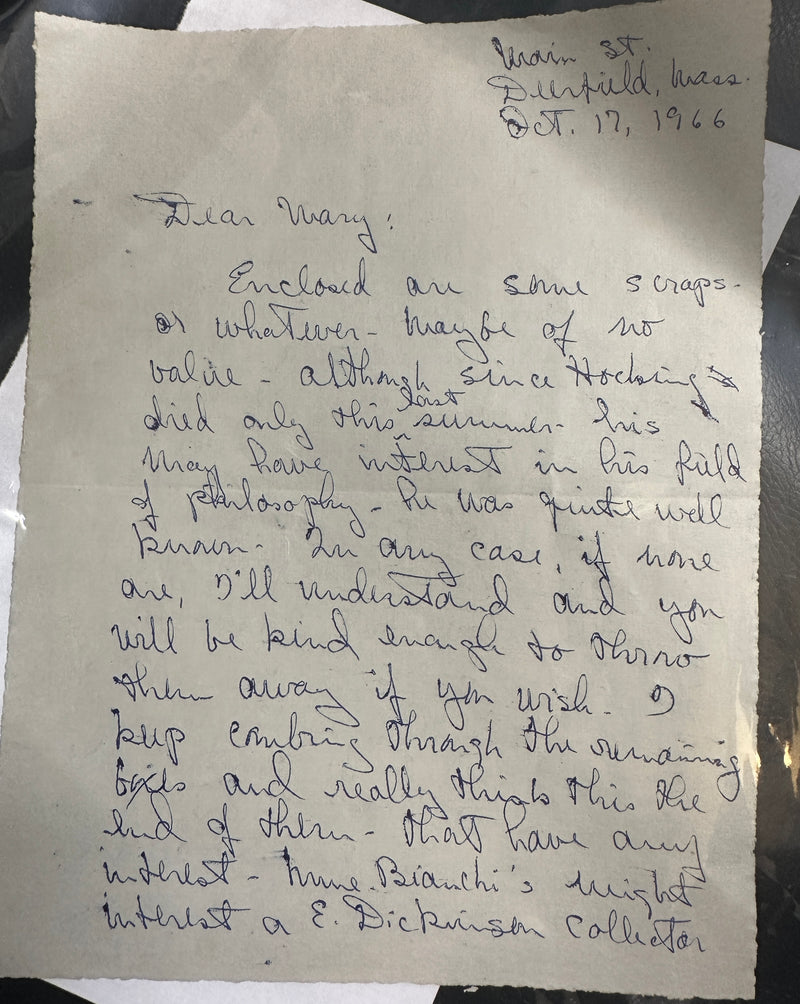 Main St.
Deerfield, Mass.
Oct. 17, 1966
Dear Mary:
Enclosed are some scraps-
or whatever - maybe of no
value - although since Hocking
died only this last summer - his
may have interest in his field
of philosophy - he was quite well
known - In any case, if none
are, I'll understand and you
will be kind enough to throw
them away if you wish. I
keep combing through the remaining
boxes and really think this the
end of them - that have any
interest - Mme. Bianchi's might
interest a E. Dickinson collector